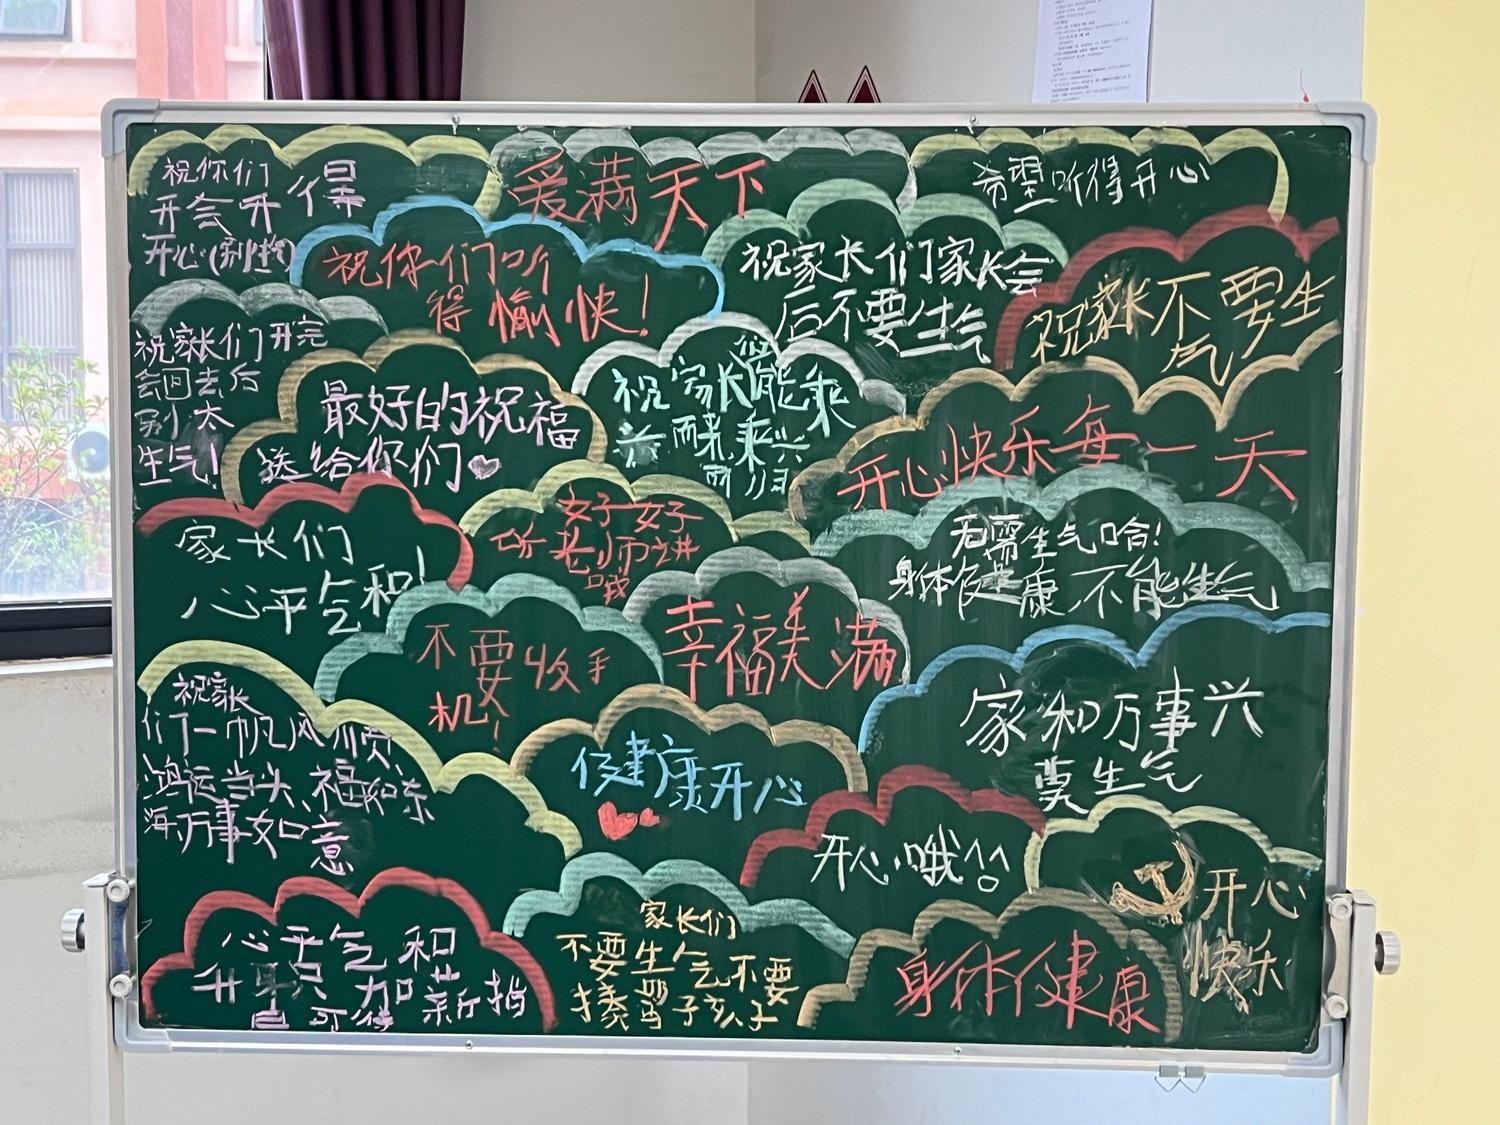 祝你们
开会开得
开心(别
爱满天下
希望听得开心
祝你们听
得愉快!
祝家长们家长会
后不要生气
祝家长不要生
气
祝家长们开完
会回去后
别太
生气!
最好的祝福
送给你们
祝家长们能乘
兴而来,乘兴
而归
开心快乐每一天
家长们
心平气和!
好好
听老师讲
哦
无需生气哈!
身体健康,不能生气
不要收手
机!
幸福美满
祝家长
们一帆风顺,
鸿运当头、福如东
海,万事如意
健康开心
家和万事兴
莫生气
开心哦^^
开心
快乐
心平气和
升职加薪
家长们
不要生气不要
揍骂孩子
身体健康